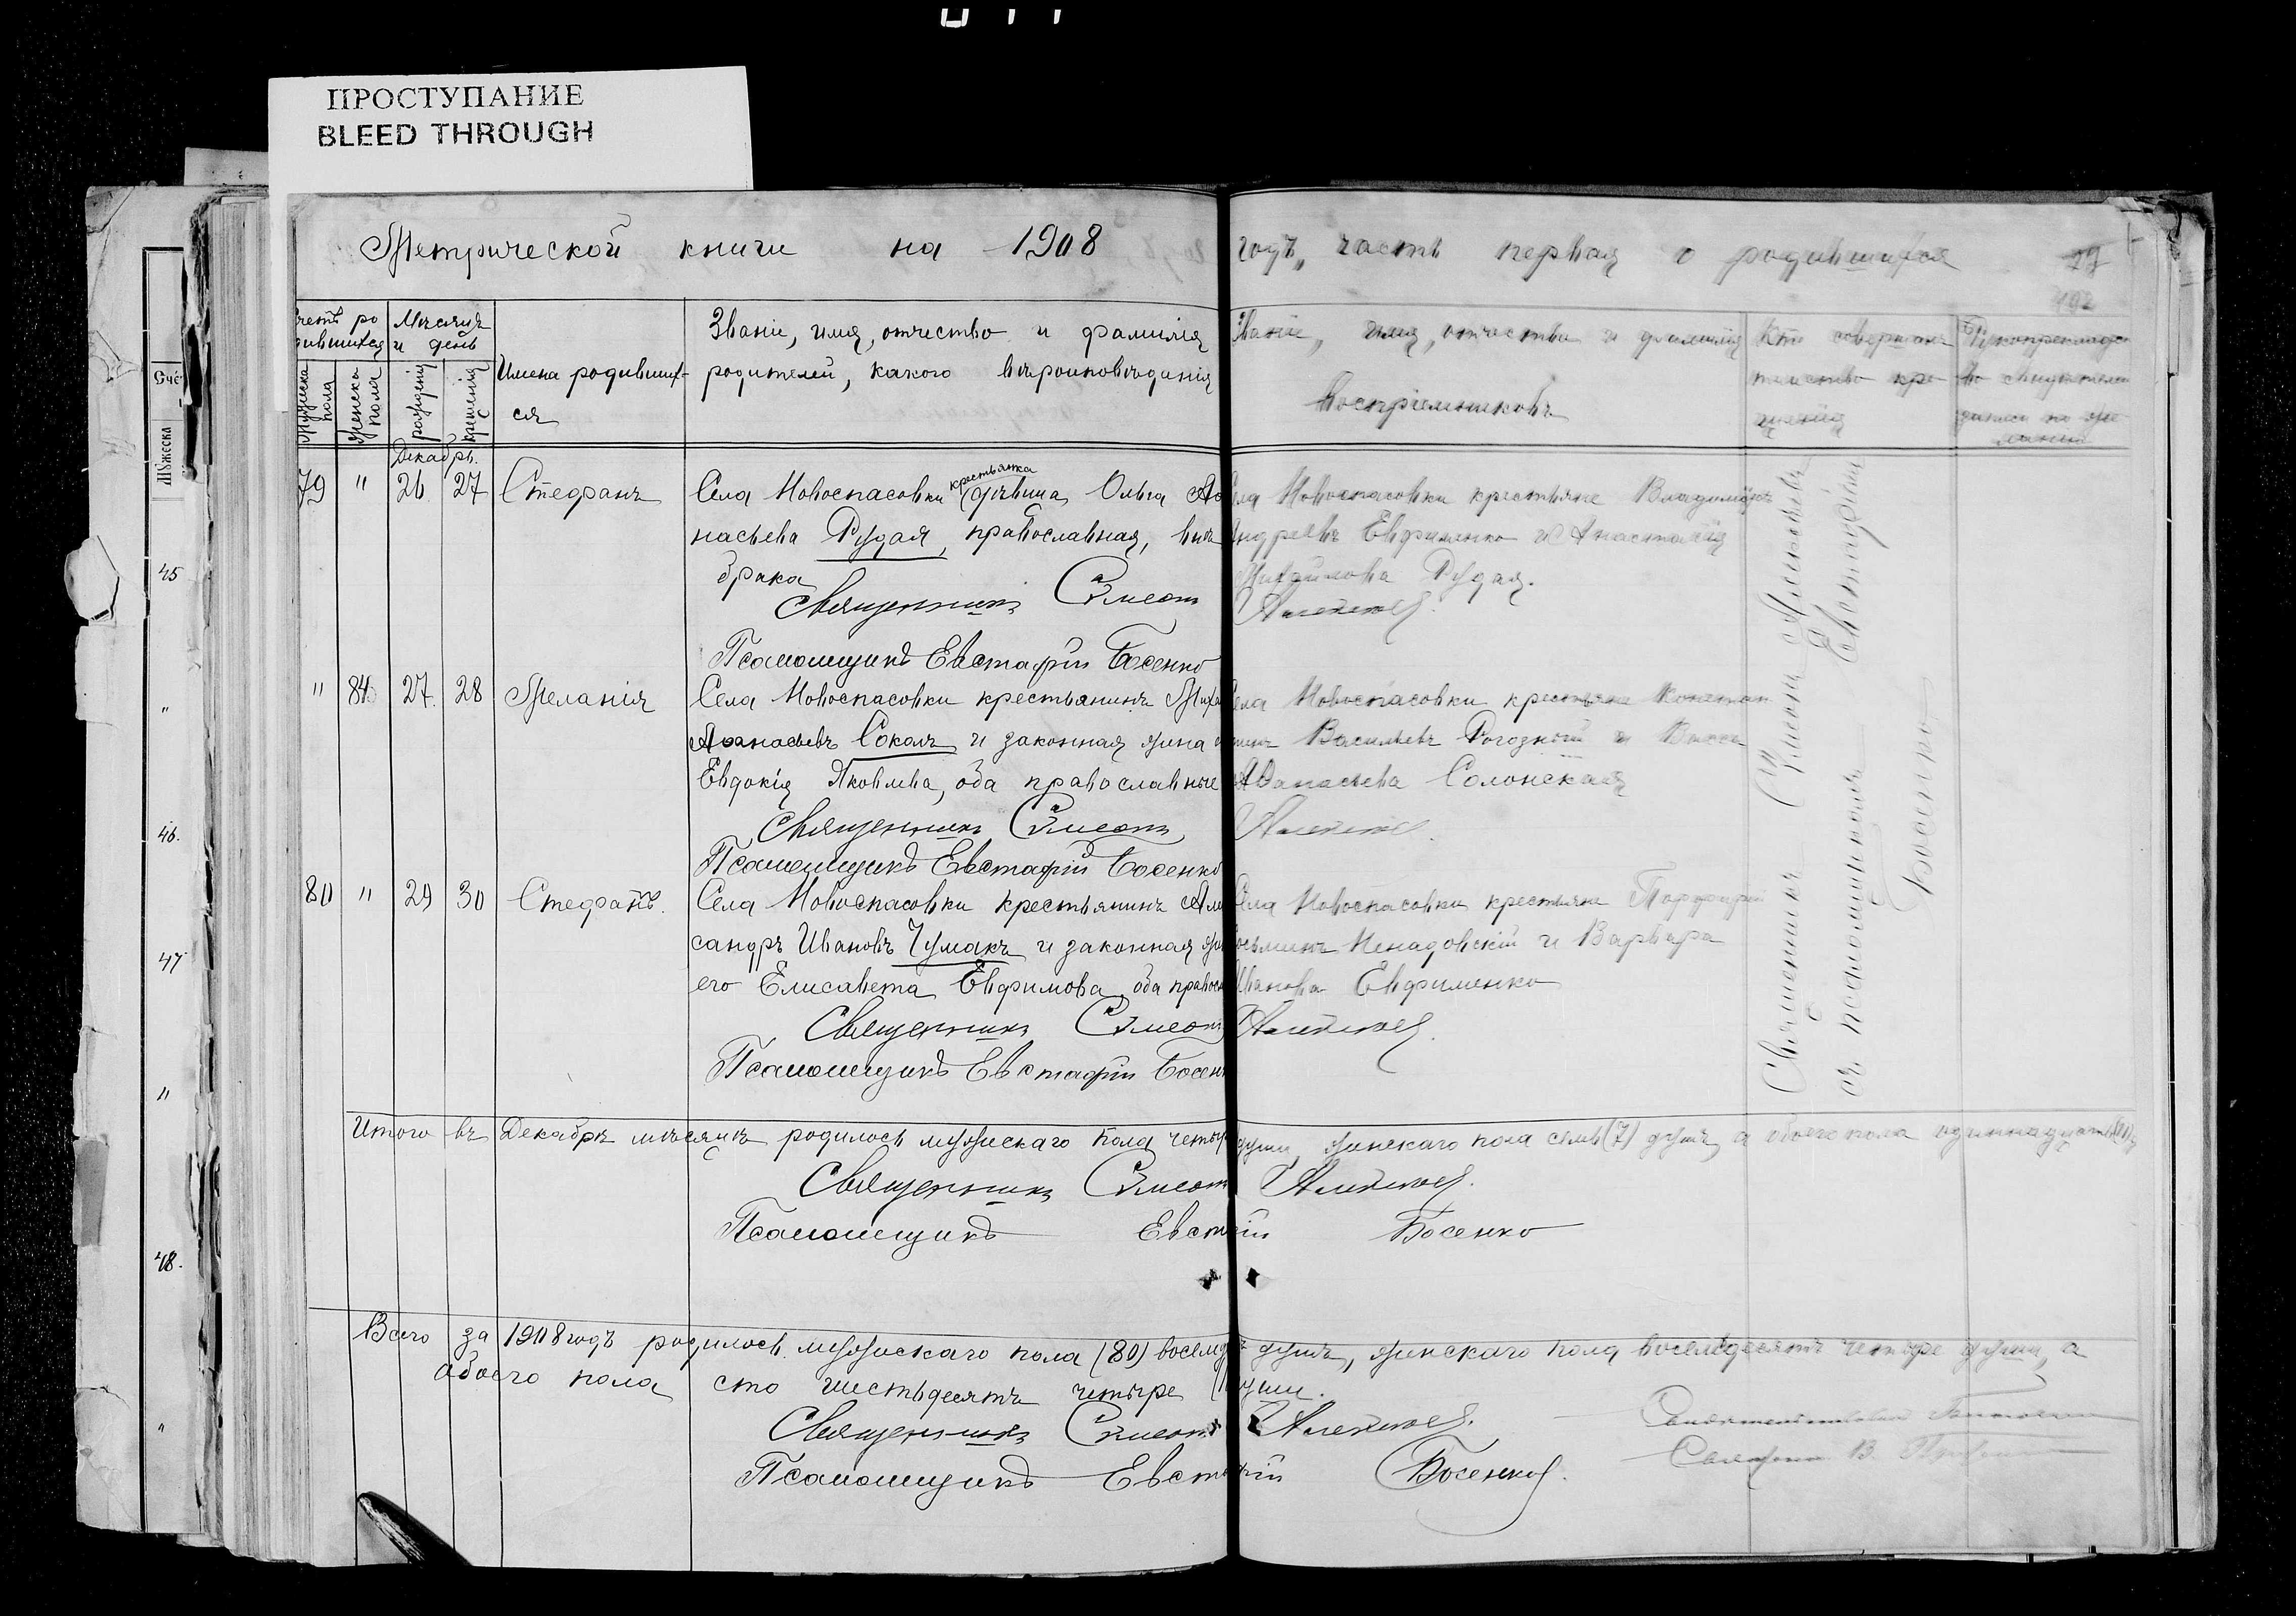 ПРОСТУПАНИЕ
BLEED THROUGH
Метрической книги на 1908
годъ, часть первая о родившихся
Счетъ ро
дившихся
Мѣсяцъ
и день
Мужеска
пола
Женска
пола
рожденія
крещенія
Имена родивших-
ся
Званіе, имя, отчество и фамилія
родителей, какого вѣроисповѣданія
Званіе, имя, отчество и фамилія
воспріемниковъ
Кто совершалъ
таинство кре-
щенія
Декабрь.
79 " 26 27 Стефанъ
Села Новоспасовки крестьянка дѣвица Ольга Аѳа
насьева Рудая, православная, внѣ
брака
Священникъ Симеонъ
Псаломщикъ Евстафій Босенко
Села Новоспасовки крестьяне Владиміръ
Андреевъ Евфименко и Анастасія
Михайлова Рудая.
" 84 27. 28 Меланія
Села Новоспасовки крестьянинъ Миха
Аѳанасьевъ Соколъ и законная жена
Евдокія Яковлева, оба православные
Священникъ Симеонъ
Псаломщикъ Евстафій Босенко
Села Новоспасовки крестьяне Констан
тинъ Васильевъ Рогозный и Васса
Аѳанасьева Солонская
80 " 29 30 Стефанъ.
Села Новоспасовки крестьянинъ Але
сандръ Ивановъ Чумакъ и законная же
его Елисавета Евфимова, оба правос
Священникъ Симеонъ
Псаломщикъ Евстафій Босен
Села Новоспасовки крестьяне Порфирій
Косьминъ Ненадовскій и Варвара
Иванова Евфименко
Священникъ Симеонъ
съ псаломщикомъ Евстафіемъ
Босенко
Итого въ Декабрѣ мѣсяцѣ родилось мужескаго пола четы души, женскаго пола семь (7) душъ, а обоего пола одиннадцать (11)
Священникъ Симеонъ
Псаломщикъ Евстафій Босенко
Всего за 1908 годъ родилось мужескаго пола (80) восемд душъ, женскаго пола восемдесятъ четыре души, а
обоего пола сто шестьдесятъ четыре души.
Священникъ Симеонъ
Псаломщикъ Евстафій Босенко
Счё
Мужеска
45
"
46.
47
"
48.
"